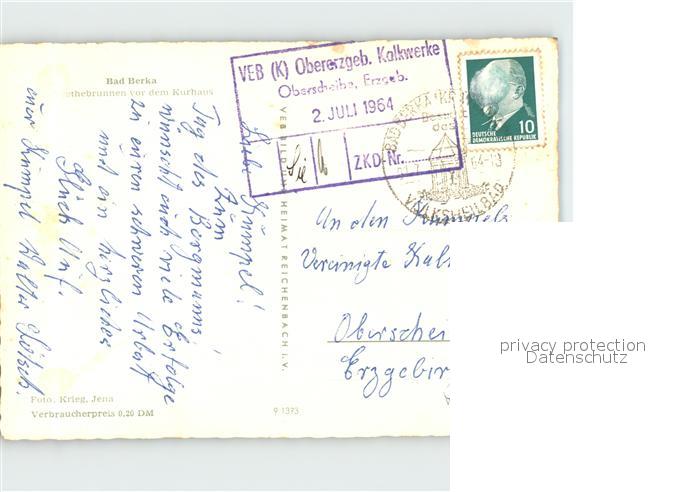 Bad Berka
thebrunnen vor dem Kurhaus
VEB (K) Obererzgeb. Kalkwerke
Oberscheibe, Erzgeb.
2. JULI 1964
ZKD-Nr.
10
DEUTSCHE
DEMOKRATISCHE REPUBLIK
BAD BERKA
das
64-10
VOLKSHEILBAD
VEB BILD HEIMAT REICHENBACH i.V.
Liebe Kumpel!
Zum
Tag des Bergmanns,
wünscht euch viele Erfolge
in eurer schweren Arbeit
und ein herzliches
Glück Auf.
euer Kumpel Walter
An den Kumpels
Vereinigte Kal
Oberschei
Erzgebir
Foto: Krieg, Jena
Verbraucherpreis 0,20 DM
9 1373
privacy protection
Datenschutz